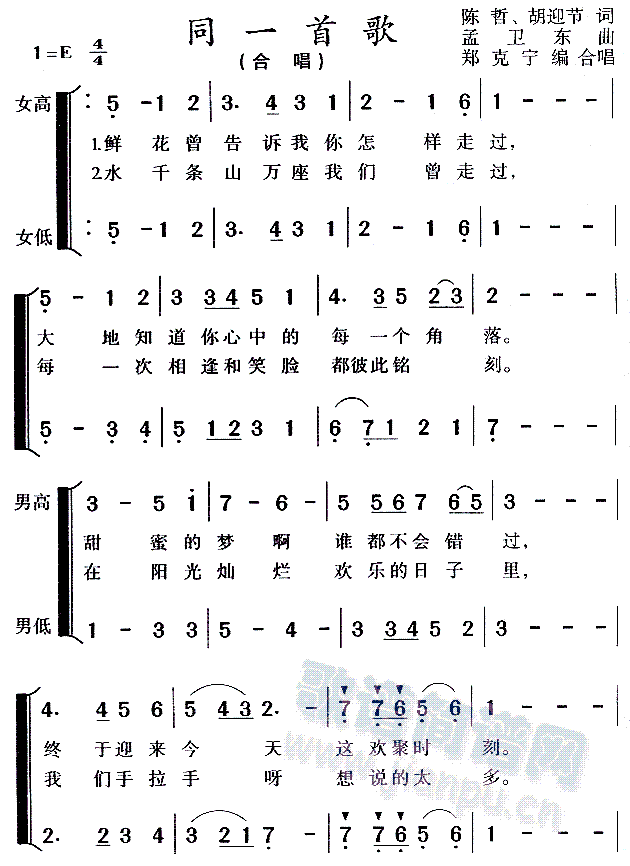 同一首歌
(合唱)
陈哲、胡迎节 词
孟卫东 曲
郑克宁编合唱
1=E 4/4
女高 : 5 - 1 2 | 3. 4 3 1 | 2 - 1 6 | 1 - - - |
1.鲜花曾告诉我你怎样走过,
2.水千条山万座我们曾走过,
女低 : 5 - 1 2 | 3. 4 3 1 | 2 - 1 6 | 1 - - - |
5 - 1 2 | 3 3 4 5 1 | 4. 3 5 2 3 | 2 - - - |
大地知道你心中的每一个角落。
每一次相逢和笑脸都彼此铭刻。
5 - 3 4 | 5 1 2 3 1 | 6 7 1 2 1 | 7 - - - |
男高 3 - 5 1 | 7 - 6 - | 5 5 6 7 6 5 | 3 - - - |
甜蜜的梦啊谁都不会错过,
在阳光灿烂欢乐的日子里,
男低 1 - 3 3 | 5 - 4 - | 3 3 4 5 2 | 3 - - - |
4. 4 5 6 | 5 4 3 2. - | 7 7 6 5 6 | 1 - - - |
终于迎来今天这欢聚时刻。
我们手拉手呀想说的太多。
2. 2 3 4 | 3 2 1 7 - | 7 7 6 5 6 | 1 - - - |
歌谱简谱网
www.jianpu.cn